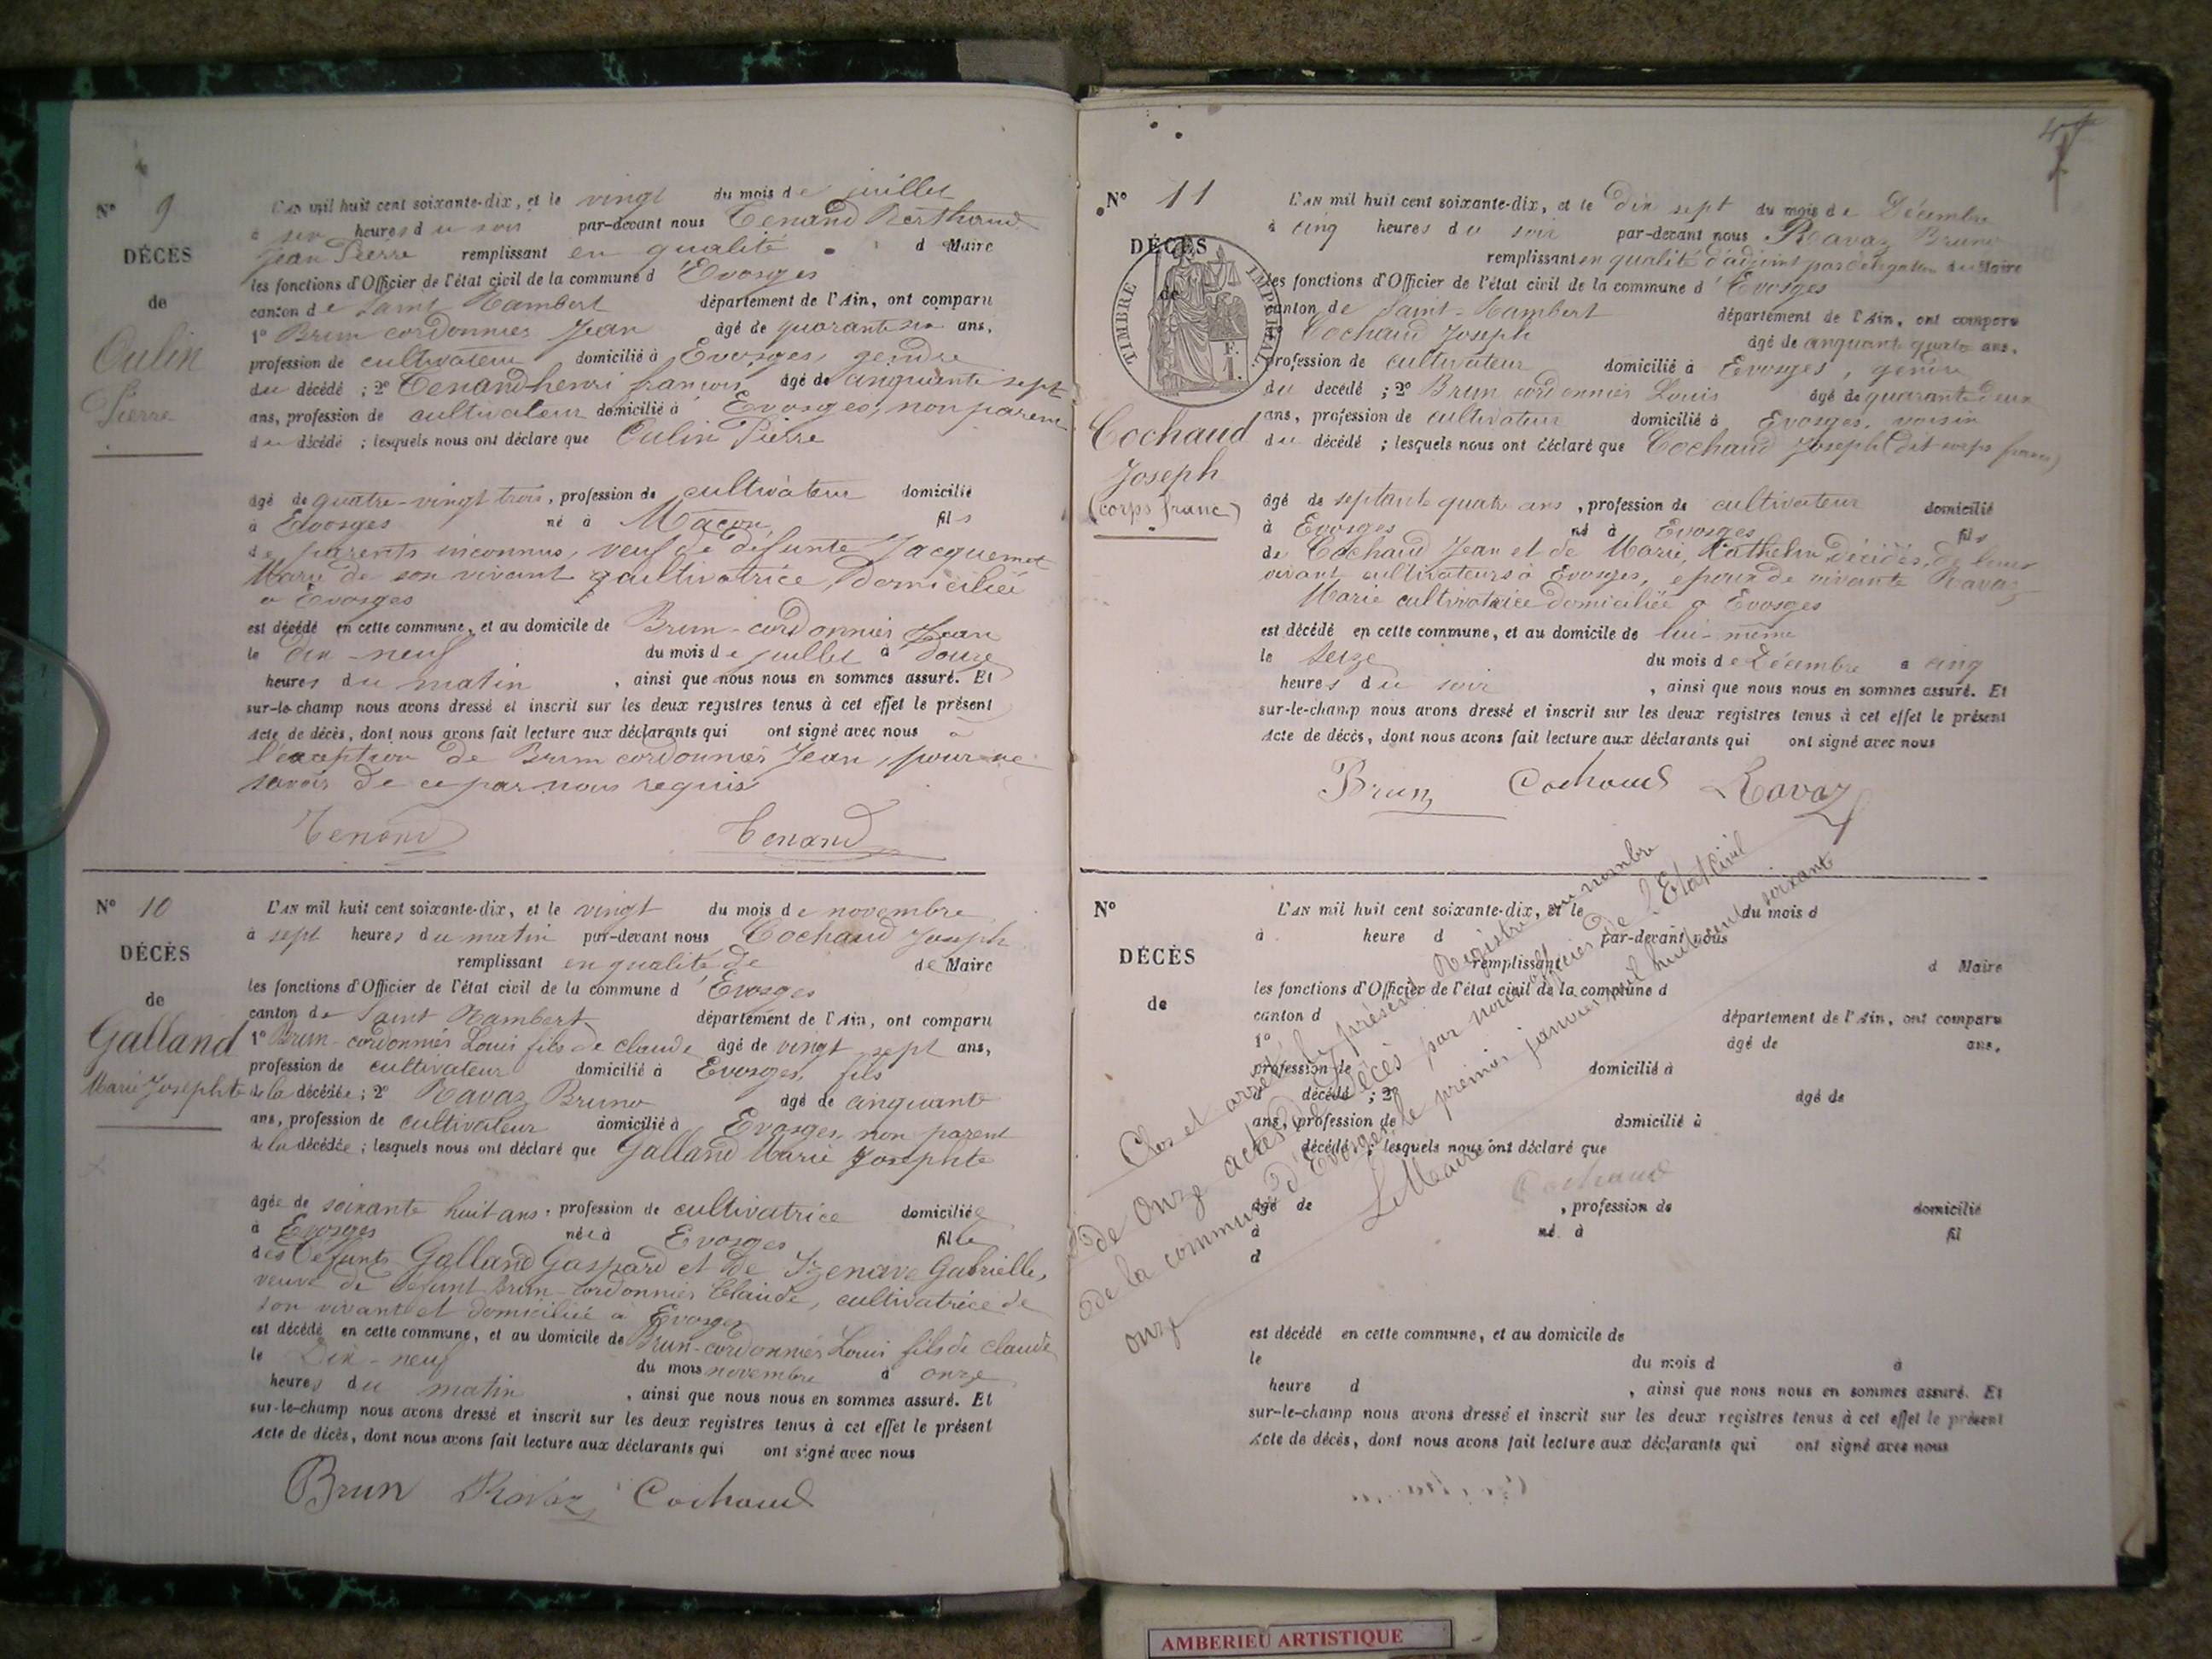 N° 9
DÉCÈS
de
Culin
Pierre
L'AN mil huit cent soixante-dix, et le vingt du mois de juillet
à six heures du soir par-devant nous Tenand Berthaud
Jean Pierre remplissant en qualité d Maire
les fonctions d'Officier de l'état civil de la commune d'Evosges
canton de Saint Rambert département de l'Ain, ont comparu
1° Brun cordonnier Jean âgé de quarante six ans,
profession de cultivateur domicilié à Evosges, gendre
du décédé ; 2° Tenand-henri françois âgé de cinquante sept
ans, profession de cultivateur domicilié à Evosges, non parent
du décédé ; lesquels nous ont déclaré que Culin Pierre
âgé de quatre-vingt trois, profession de cultivateur domicilié
à Evosges né à Mâcon fils
de parents inconnus, veuf de défunte Jacquemet
Marie de son vivant cultivatrice, domiciliée
à Evosges
est décédé en cette commune, et au domicile de Brun-cordonnier Jean
le dix-neuf du mois de juillet à douze
heures du matin, ainsi que nous nous en sommes assuré. Et
sur-le-champ nous avons dressé et inscrit sur les deux registres tenus à cet effet le présent
Acte de décès, dont nous avons fait lecture aux déclarants qui ont signé avec nous à
l'exception de Brun cordonnier Jean, pour ne
savoir de ce par nous requis
Tenand Tenand
N° 10
DÉCÈS
de
Galland
Marie Josephte
L'AN mil huit cent soixante-dix, et le vingt du mois de novembre
à sept heures du matin par-devant nous Cochaud Joseph
remplissant en qualité de de Maire
les fonctions d'Officier de l'état civil de la commune d'Evosges
canton de Saint Rambert département de l'Ain, ont comparu
1° Brun-cordonnier Louis fils de claude âgé de vingt sept ans,
profession de cultivateur domicilié à Evosges, fils
de la décédée ; 2° Ravaz Bruno âgé de cinquante
ans, profession de cultivateur domicilié à Evosges, non parent
de la décédée ; lesquels nous ont déclaré que Galland Marie Josephte
âgée de soixante huit ans, profession de cultivatrice domiciliée
à Evosges née à Evosges fille
des défunts Galland Gaspard et de Izenave Gabrielle,
veuve de défunt Brun-cordonnier Claude, cultivatrice de
son vivant et domiciliée à Evosges
est décédé en cette commune, et au domicile de Brun-cordonnier Louis fils de claude
le Dix-neuf du mois novembre à onze
heures du matin, ainsi que nous nous en sommes assuré. Et
sur-le-champ nous avons dressé et inscrit sur les deux registres tenus à cet effet le présent
Acte de décès, dont nous avons fait lecture aux déclarants qui ont signé avec nous
Brun Ravaz Cochaud
N° 11
DÉCÈS
de
TIMBRE IMPÉRIAL
F.
1.
Cochaud
Joseph
(corps franc)
L'AN mil huit cent soixante-dix, et le Dix sept du mois de Décembre
à cinq heures du soir par-devant nous Ravaz Bruno
remplissant en qualité d'adjoint par délégation du Maire
les fonctions d'Officier de l'état civil de la commune d'Evosges
canton de Saint-Rambert département de l'Ain, ont comparu
Cochaud Joseph âgé de cinquante quatre ans,
profession de cultivateur domicilié à Evosges, gendre
du décédé ; 2° Brun cordonnier Louis âgé de quarante deux
ans, profession de cultivateur domicilié à Evosges, voisin
du décédé ; lesquels nous ont déclaré que Cochaud Joseph (dit corps franc)
âgé de septante quatre ans, profession de cultivateur domicilié
à Evosges né à Evosges fils
de Cochaud Jean et de Marie, décédés, de leur
vivant cultivateurs à Evosges, époux de vivante Ravaz
Marie cultivatrice domiciliée à Evosges
est décédé en cette commune, et au domicile de lui-même
le seize du mois de Décembre à cinq
heures du soir, ainsi que nous nous en sommes assuré. Et
sur-le-champ nous avons dressé et inscrit sur les deux registres tenus à cet effet le présent
Acte de décès, dont nous avons fait lecture aux déclarants qui ont signé avec nous
Brun Cochaud Ravaz
N°
DÉCÈS
de
L'AN mil huit cent soixante-dix, et le du mois d
à heure d par-devant nous
remplissant d Maire
les fonctions d'Officier de l'état civil de la commune d
canton d département de l'Ain, ont comparu
1° âgé de ans,
profession de domicilié à
décédé ; 2° âgé de
ans, profession de domicilié à
décédé ; lesquels nous ont déclaré que
âgé de , profession de domicilié
à né à fil
d
est décédé en cette commune, et au domicile de
le du mois d à
heure d , ainsi que nous nous en sommes assuré. Et
sur-le-champ nous avons dressé et inscrit sur les deux registres tenus à cet effet le présent
Acte de décès, dont nous avons fait lecture aux déclarants qui ont signé avec nous
Clos et arrêté le présent Registre au nombre
de Onze actes de Décès par nous officier de l'Etat civil
de la commune d'Evosges, le premier janvier mil huit cent soixante
onze
Le Maire
Cochaud
AMBERIEU ARTISTIQUE